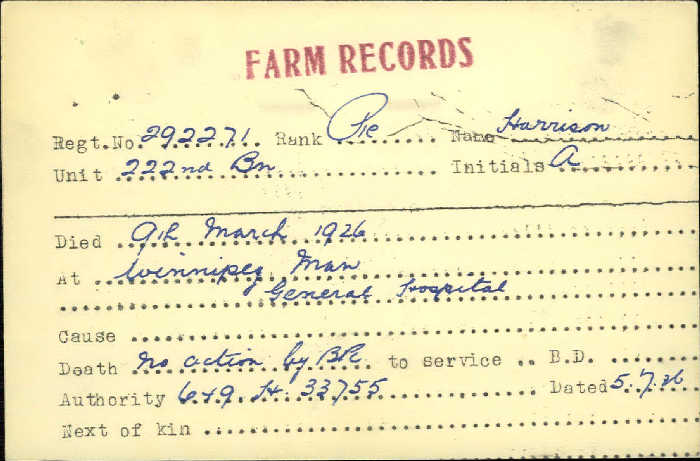 FARM RECORDS
Regt.No. 292271. Rank Pte Name Harrison
Unit 222nd Bn Initials A
Died 9th March 1926
At Winnipeg Man
General Hospital
Cause
Death no action by BPC to service .. B.D.
Authority 649. H. 33755 Dated 5.7.26
Next of kin